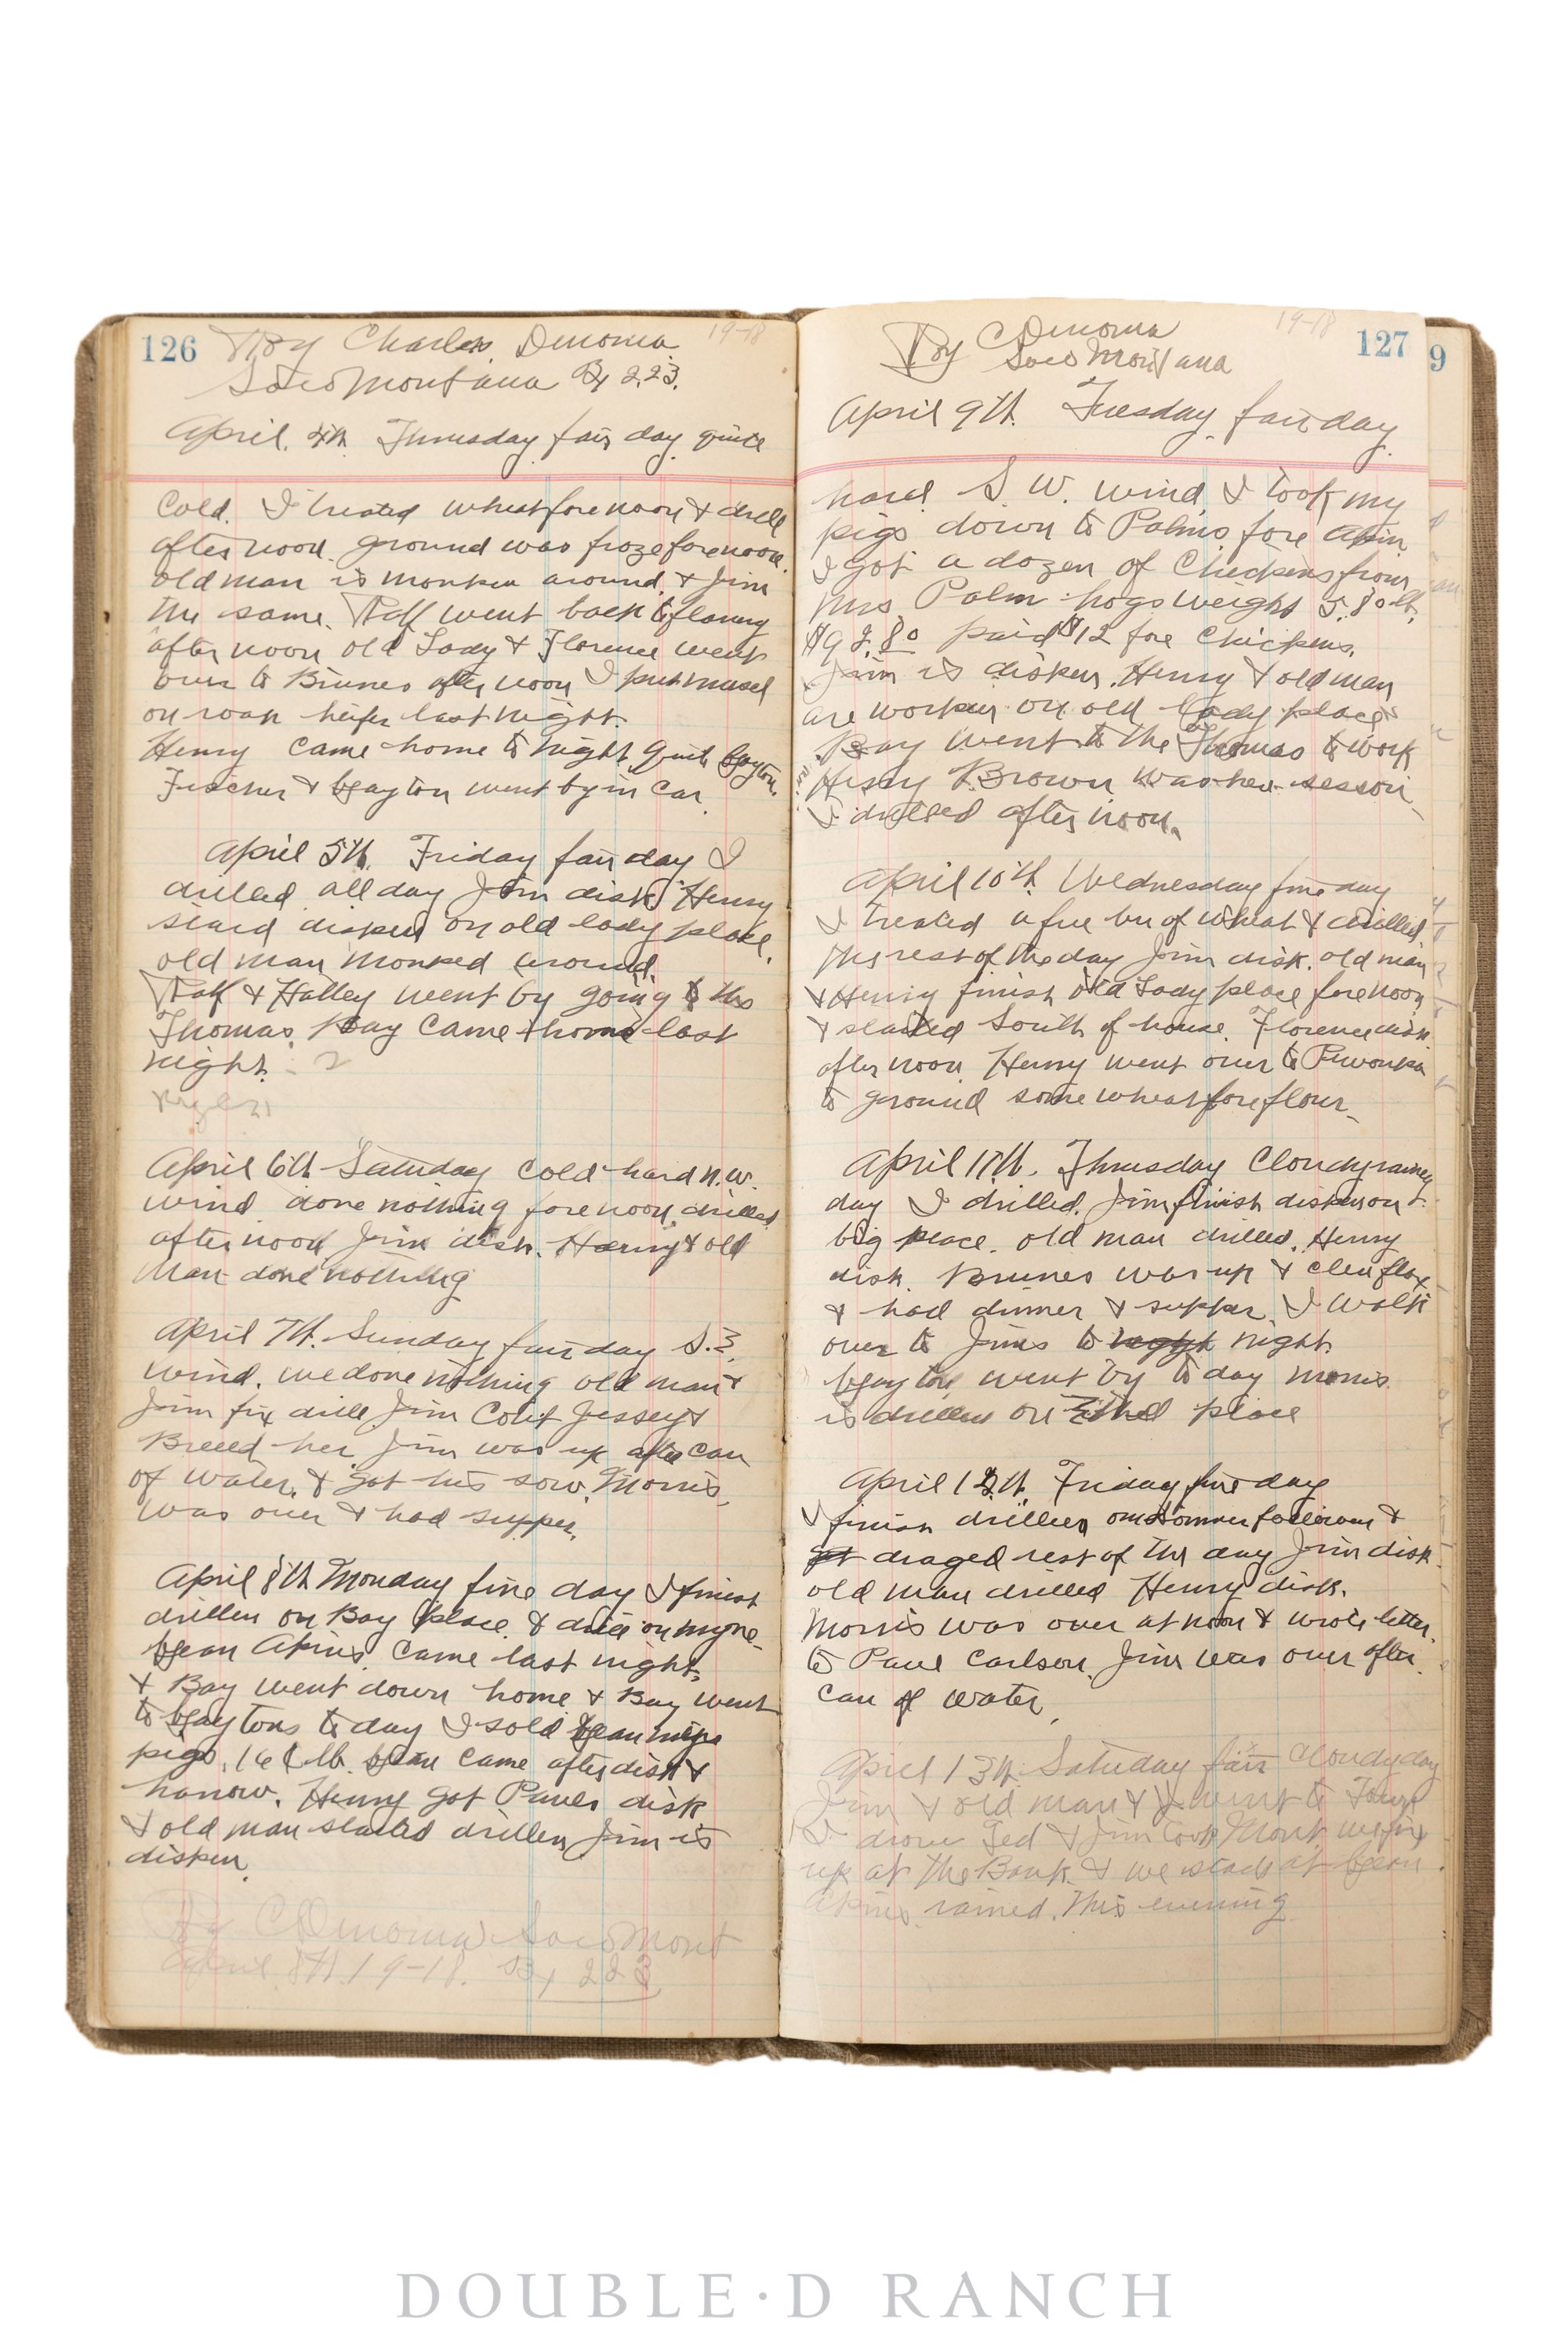 126 By Charles Denoma 19-18
Saco Montana Bx 223.
April. 4th Thursday fair day quite
Cold. I treated wheat fore noon & drill
after noon. ground was froze fore noon.
old man is monken around, & Jim
the same. Ralf went back to
after noon old Lady & Florence went
over to Brunes after noon I put
on roan heifer last night.
Henry came home to night quit Gayton.
Fischer & Gayton went by in Car.
April 5th. Friday fair day I
drilled all day Jim disk Henry
stard disken on old lady place.
old man monked around.
Ralf & Halley went by going to the
Thomas. Bay came home last
night.
April 6th Saturday Cold hard n.w.
wind done nothing fore noon, drilled
after noon Jim disk. Henry & old
man done nothing
April 7th. Sunday fair day S.E.
wind. we done nothing old man &
Jim fix drill Jim Colt Jessey &
Breed her. Jim was up after can
of water, & got his sow. Morris
was over & had supper.
April 8th Monday fine day I finish
drillen on Bay place & drill on myne
Akins. came last night,
& Bay went down home & Bay went
to Gaytons to day I sold
pigs. lb. came after disk &
harrow. Henry got Paules disk
& old man started drillen, Jim is
disken.
By C Denoma Saco Mont
April 8th 19-18. Bx 223
By C Denoma 19-18 127
Saco Montana
9
April 9th. Tuesday fair day.
hard S W. wind I took my
pigs down to Palms fore Akin
I got a dozen of Chickens from
Mrs Palm hogs weight 580 lb.
$92.80 paid $12 fore Chickens.
Jim is disken. Henry & old man
are worken on old lady place
Bay went to the Thomas to work
Henry Brown was her
I drilled after noon.
April 10th. Wednesday fine day
I treated a few bu of wheat & drilled
the rest of the day Jim disk. old man
& Henry finish old Lady place fore noon
& started South of house. Florence disk
after noon Henry went over to
to ground some wheat fore flour
April 11th. Thursday Cloudy rainey
day I drilled. Jim finish disken on
big place. old man drilled. Henry
disk. Brunes was up & clen flax
& had dinner & supper. I walk
over to Jims to night.
Gayton went by to day Morris
is drillen on Ethel place
April 12th. Friday fine day
I finish drillen on sommer fallow &
draged rest of the day Jim disk
old man drilled Henry disk.
Morris was over at noon & wrote letter
to Paul Carlson. Jim was over after
can of water
April 13th Saturday fair Cloudy day
Jim & old man & I went to Town
I drove Ted & Jim took Mont we fix
up at the Bank & we at
Akins rained. this evening
DOUBLE·D RANCH